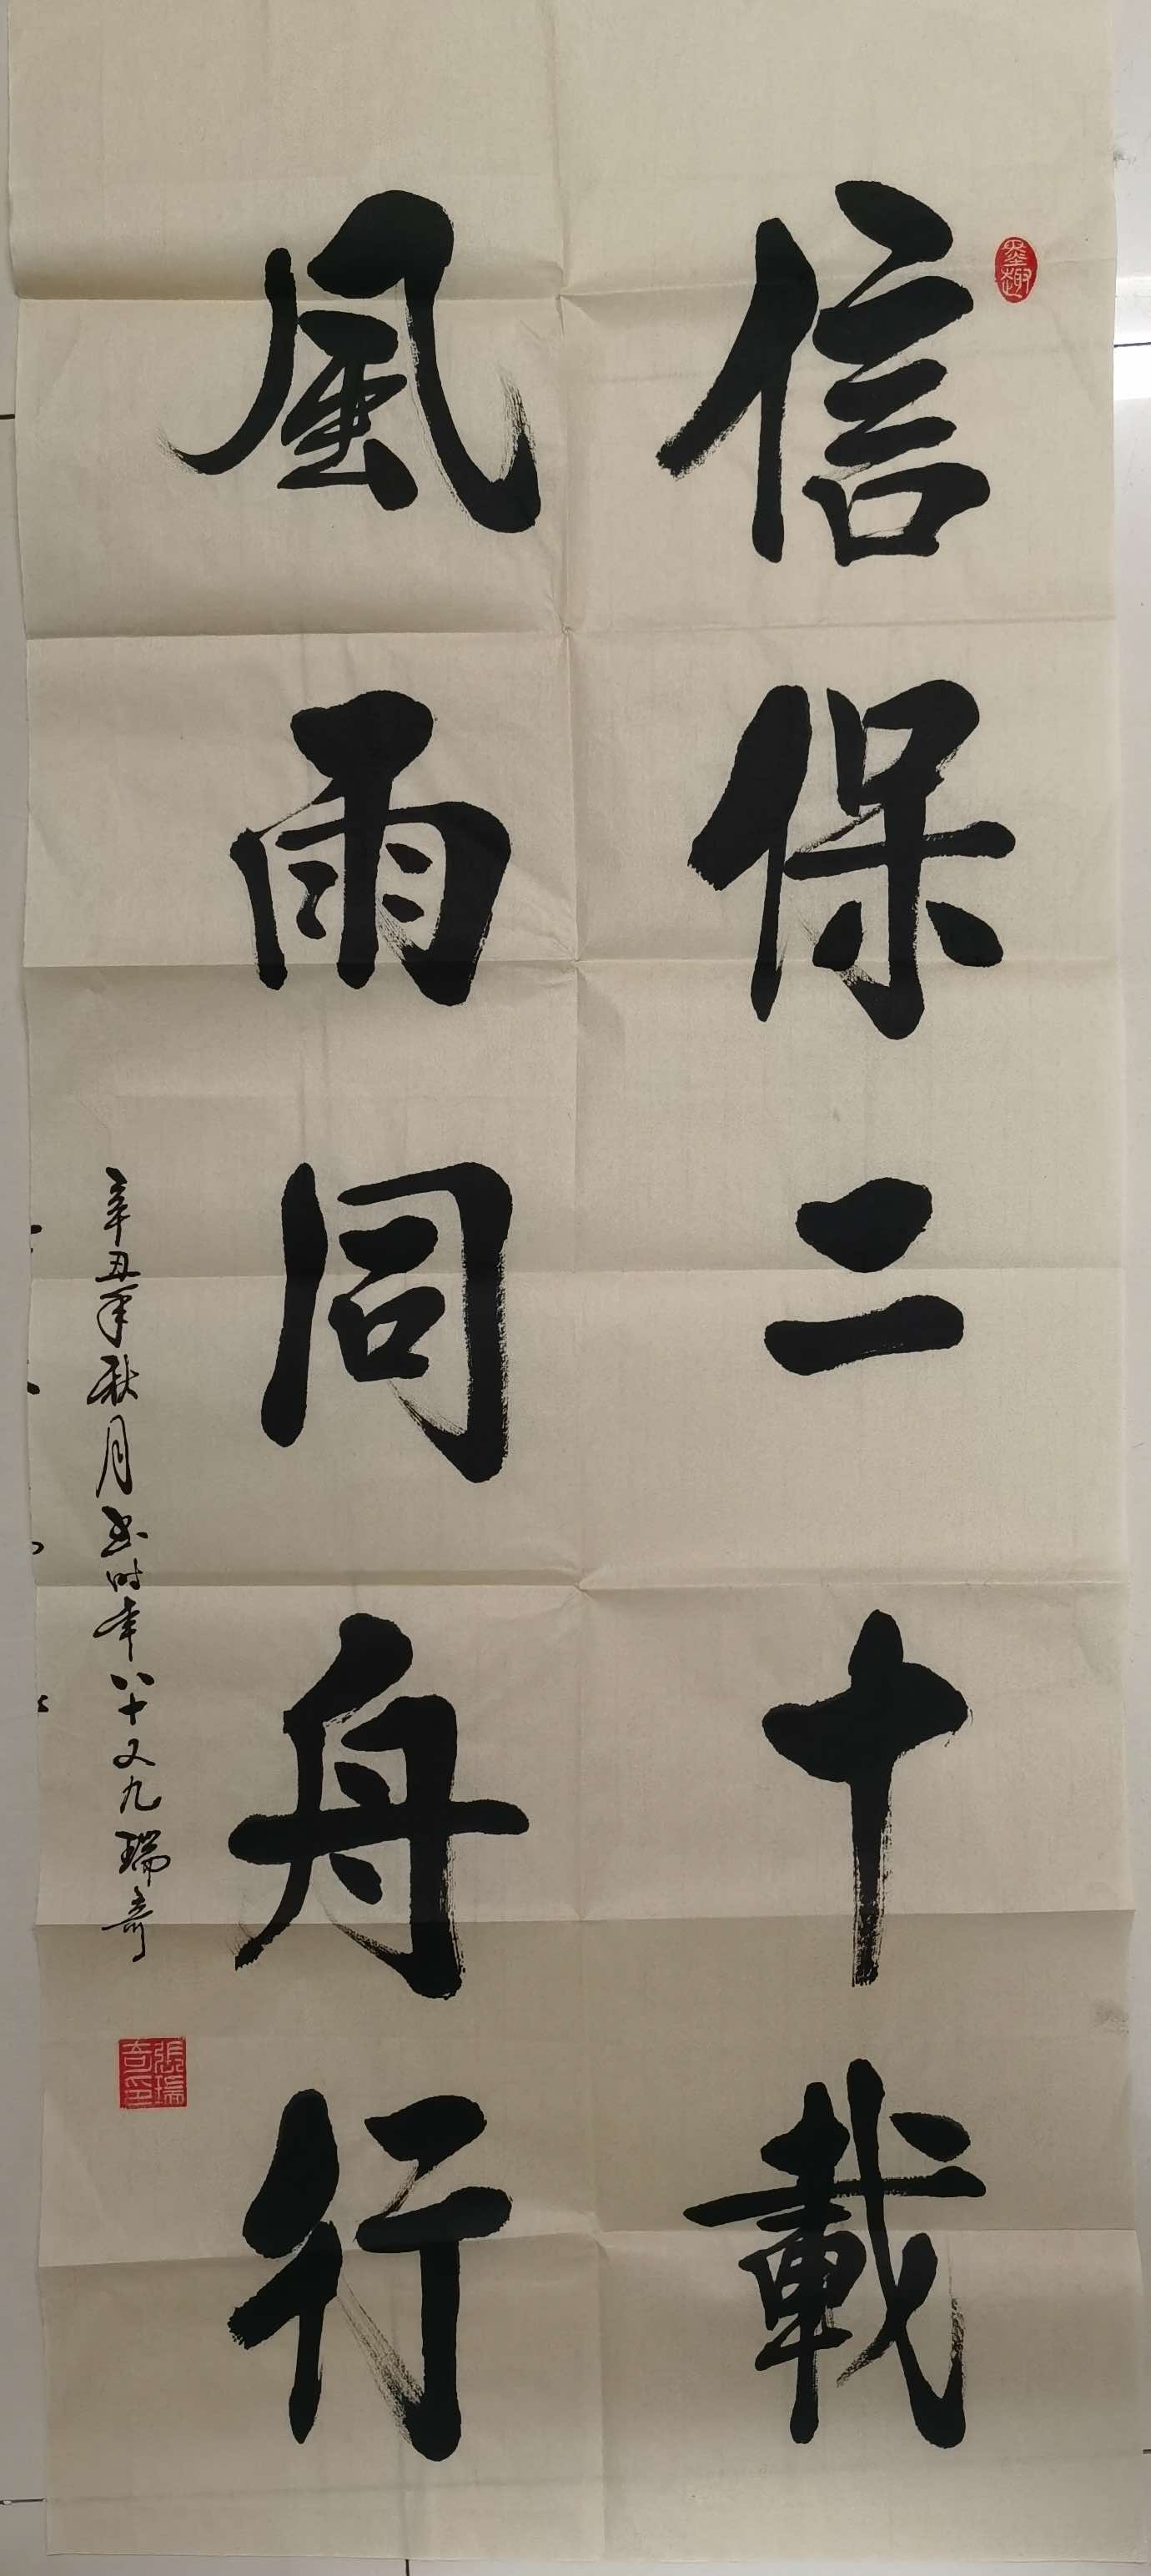 信保二十載
風雨同舟行
辛丑年秋月書时年八十又九瑞奇
墨趣
張瑞奇印